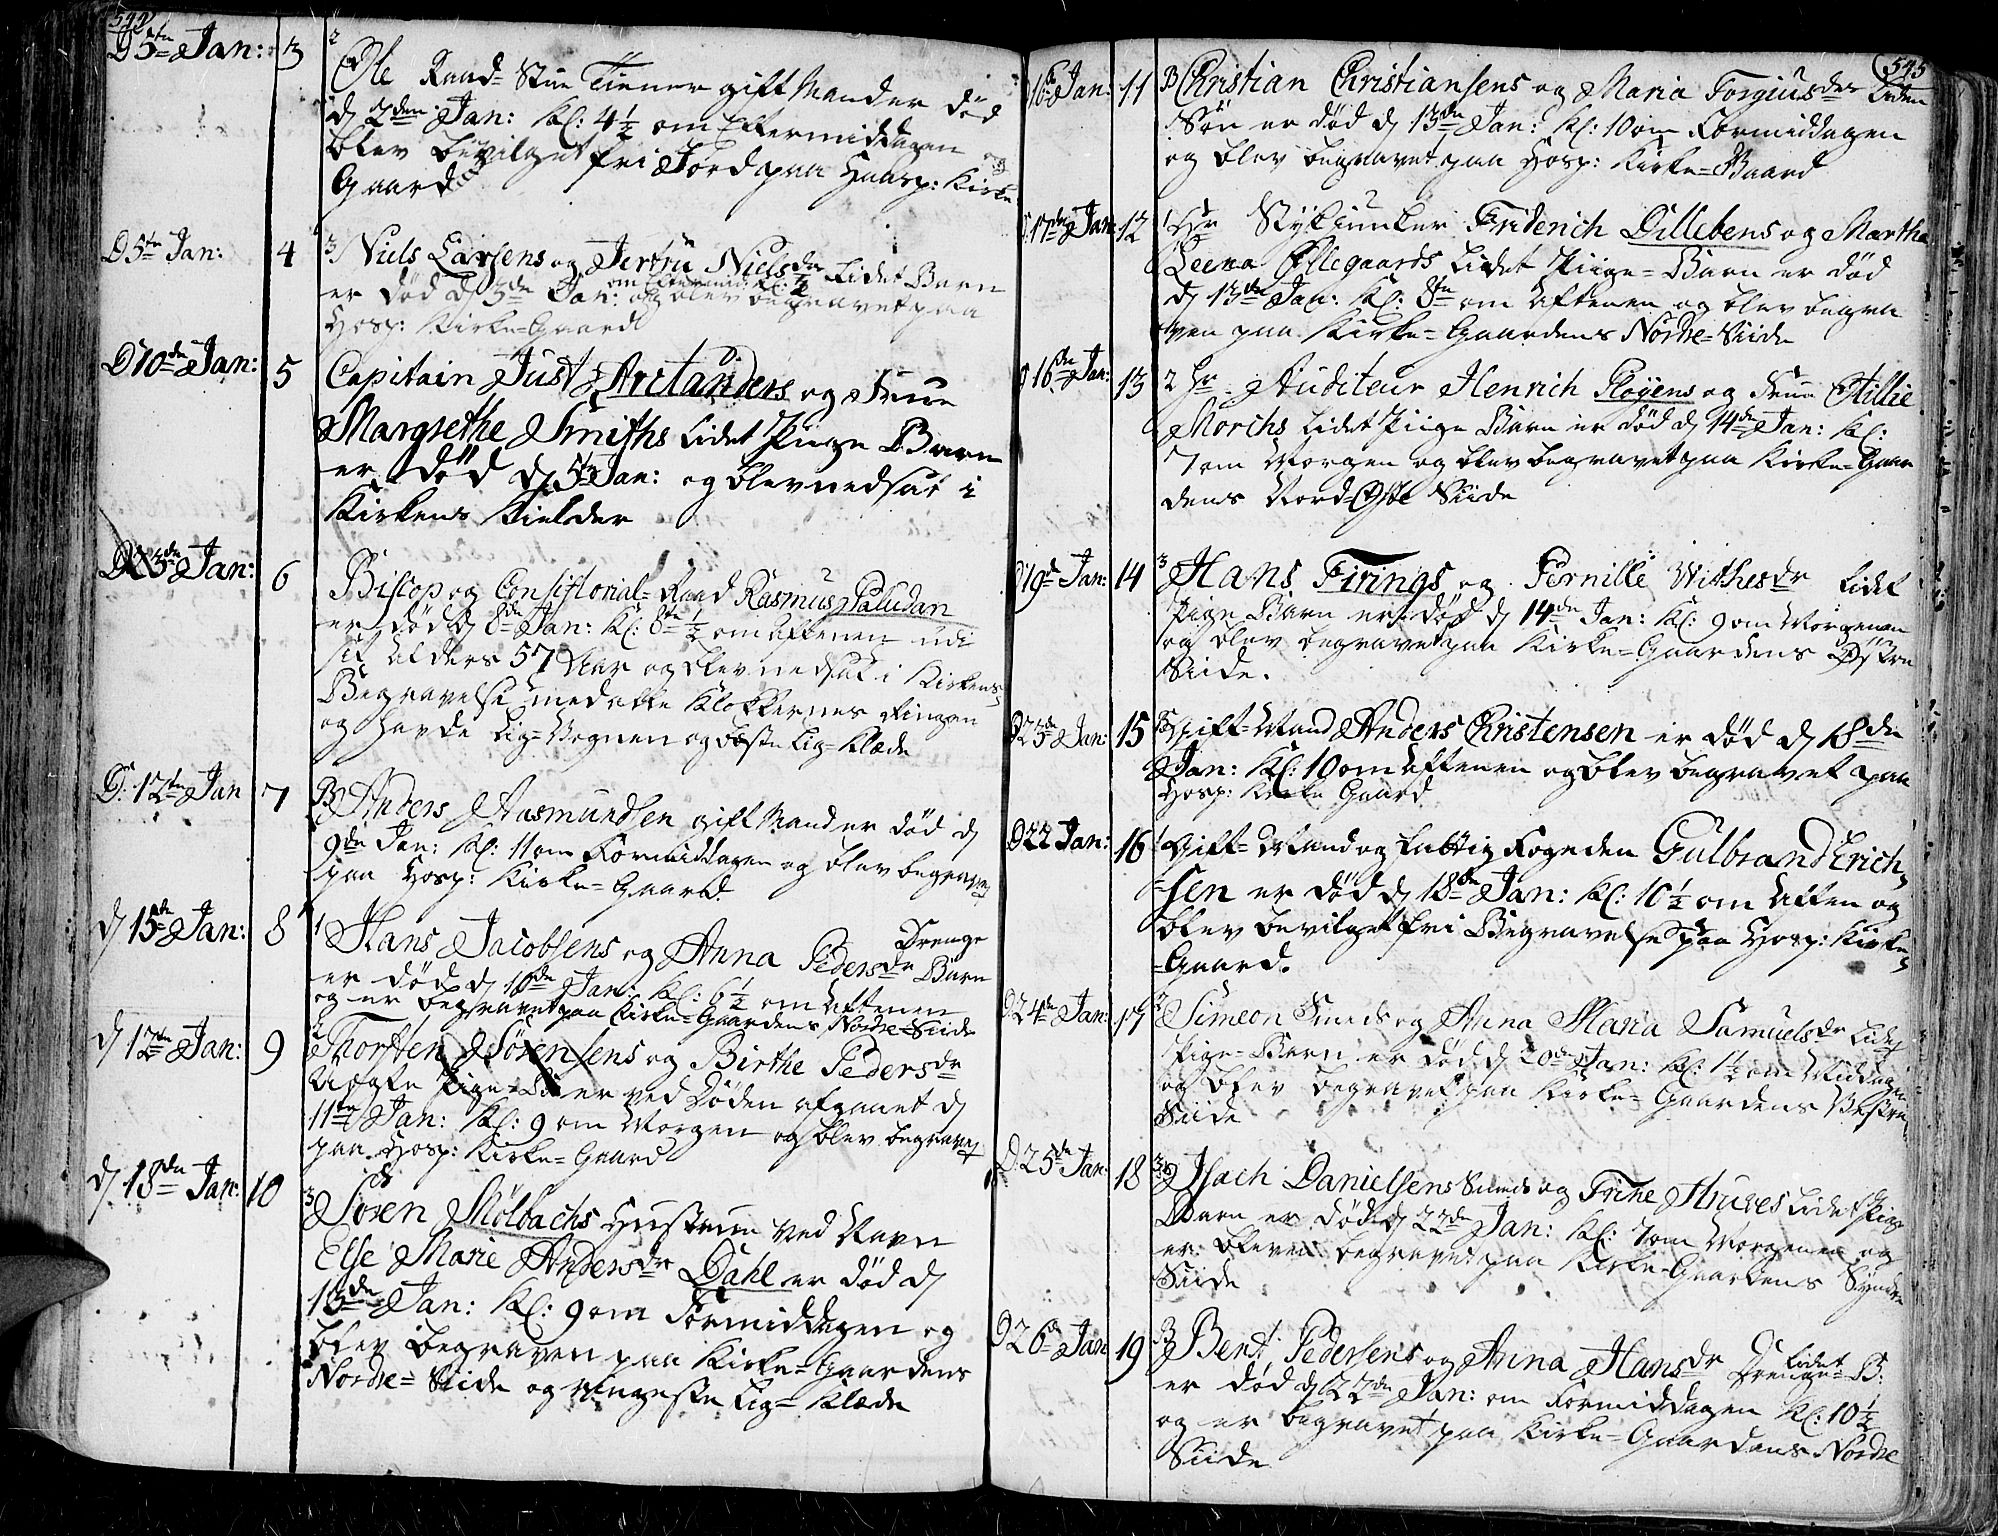 544
D 5te Jan: 3 2
Ole Raad-Stue Tiener gift Mand er død
d 2den Jan: Kl: 4½ om Eftermiddagen og
blev bevilget fri Jord paa Haasp: Kirke
Gaard
D 5te Jan: 4 3 Niels Larsens og Jertru Nielsdr Lidet Barn
er død d 3de Jan: om Eftermid: Kl: ½ og blev begravet paa
Hosp: Kirke-Gaard
D 10de Jan: 5 Capitain Just Arctanders og Frue
Margrethe Smiths Lidet Piige Barn
er død d 5te Jan: og blev nedsat i
Kirkens Kielder
D 23de Jan: 6 Biscop og Consistorial-Raad Rasmus Paludan
er død d 8de Jan: Kl: 8te ½ om Aftenen udi
sit Alders 57 Aar og blev nedsat i Kirkens
Begravelse med alle Klokkernes Ringen
og havde Lig-Vognen og beste Lig-Klæde
D: 12te Jan 7 B Anders Aasmundsen gift Mand er død d
9de Jan: Kl: 11 om Formiddagen og blev begravet
paa Hosp: Kirke-Gaard.
d 15de Jan: 8 1 Hans Jacobsens og Anna Pedersdr Drenge Barn
er død d 10de Jan: Kl: 6½ om Aftenen
og er begravet paa Kirke-Gaardens Nordre-Siide
d 12te Jan: 9 2 Thorsten Sörensens og Birthe Pedersdr
Uægte Pige- er ved Døden afgaaet d
11te Jan: Kl: 9 om Morgen og blev begravet
paa Hosp: Kirke-Gaard
d 18de Jan: 10 3 Sören Mölbachs Hustrue ved Navn
Else Marie Andersdr Dahl er død d
13de Jan: Kl: 9 om Formiddagen og
blev begraven paa Kirke-Gaardens
Nordre-Siide og ringeste Lig-Klæde
545
16de Jan: 11 B Christian Christiansens og Maria Torgiusdr Liden
Søn er død d 13de Jan: Kl: 10 om Formiddagen
og blev begravet paa Hosp: Kirke-Gaard
17de Jan 12 1 Hr Stykjunker Friderich Dillebens og Martha
Leena Ellegaards Lidet Piige-Barn er død
d 13de Jan: Kl: 8te om Aftenen og blev begra
ven paa Kirke-Gaardens Nordre-Siide
D 16de Jan: 13 2 Hr Auditeur Henrich Ployens og Frue Cillie
Morchs Lidet Piige Barn er død d 14de Jan: Kl:
7 om Morgen og blev begravet paa Kirke-Gaar
dens Nord-Oste Siide
D 19de Jan: 14 3 Hans Firings og Pernille Withesdr Lidet
Pige Barn er død d 14de Jan: Kl: 9 om Morgenen
og blev begravet paa Kirke-Gaardens Østre
Siide.
D 23de Jan: 15 B Gift-Mand Anders Christensen er død d 18de
Jan: Kl: 10 om Aftenen og blev begravet paa
Hosp: Kirke Gaard
D 22 Jan: 16 1 Gift-Mand og Fattig Fogeden Gulbrand Erich
-sen er død d 18de Jan: Kl: 10½ om Aften og
blev bevilget fri Begravelse paa Hosp: Kirke
-Gaard.
D 24de Jan: 17 2 Simeon Smeds og Anna Maria Samuelsdr Lidet
Pige-Barn er død d 20de Jan: Kl: 1½ om Middagen
og blev begravet paa Kirke-Gaardens Vestre
Siide
D 25de Jan: 18 3 Isach Danielsens Smeds og Trine Hruves Lidet Pige
Barn er død d 22de Jan: Kl: 7 om Morgenen og
er bleven begravet paa Kirke-Gaardens Syndre
Siide
D 26de Jan: 19 B Bent Pedersens og Anna Hansdr Lidet Drenge-B:
er død d 22de Jan: om Formiddagen Kl: 10½
og er begravet paa Kirke-Gaardens Nordre
Siide